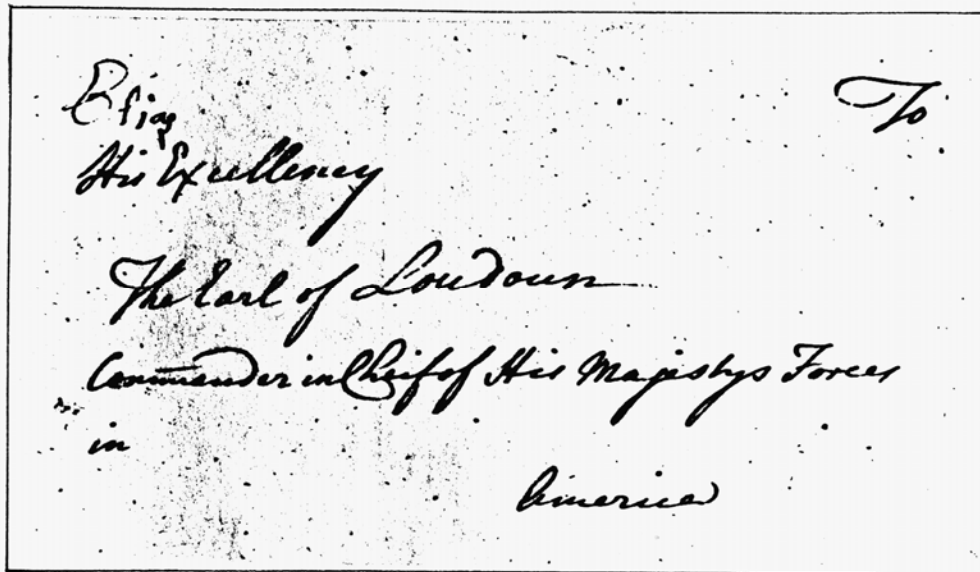 To
His Excellency
The Earl of Loudoun
Commander in Chief of His Majestys Forces
in
America